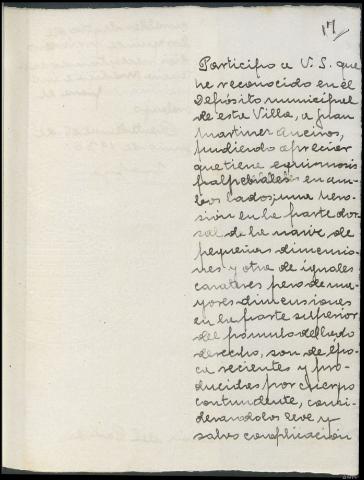 17
Participo a V. S. que
he reconocido en el
Depósito municipal
de esta Villa, a Juan
Martinez Anciros,
pudiendo apreciar
que tiene equimosis
palpebrales en am-
bos lados; una ero-
sión en la parte dor-
sal de la nariz de
pequeñas dimensio-
nes y otra de iguales
carateres pero de ma-
yores dimensiones
en la parte superior
del pómulo del lado
derecho, son de épo-
ca recientes y pro-
ducidas por cuerpo
contundente, consi-
derandolos leve y
salvo complicación